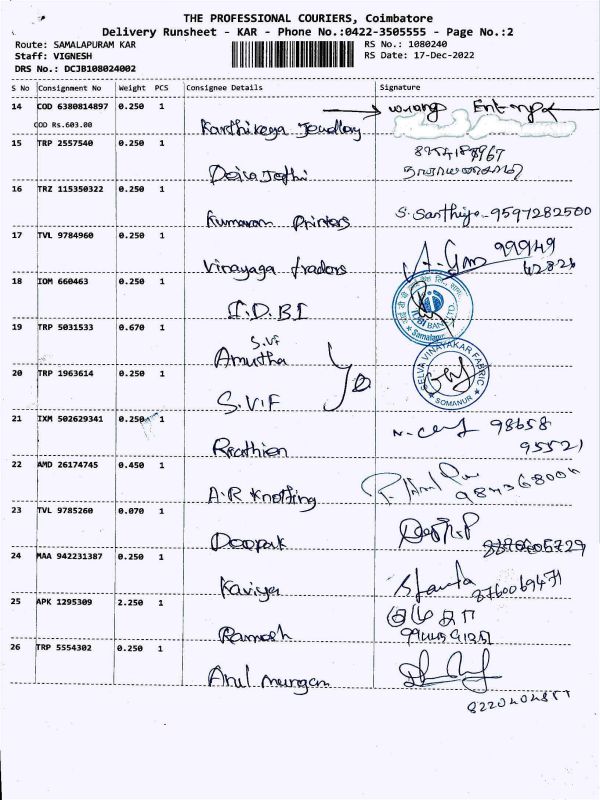 THE PROFESSIONAL COURIERS, Coimbatore
Delivery Runsheet - KAR - Phone No.:0422-3505555 - Page No.:2
Route: SAMALAPURAM KAR
RS No.: 1080240
Staff: VIGNESH
RS Date: 17-Dec-2022
DRS No.: DCJB108024002
S No Consignment No Weight PCS Consignee Details Signature
14 COD 6380814897 0.250 1 Karthikeya Jewellery wrong Entry
COD Rs.603.00
15 TRP 2557540 0.250 1
16 TRZ 115350322 0.250 1 Kumaran Printers S. Santhiya - 9597282500
17 TVL 9784960 0.250 1 Vinayaga traders 99949
42826
18 IOM 660463 0.250 1 I.D.B.I
IDBI BANK LTD.
Samalapur
19 TRP 5031533 0.670 1 S.Vi
Amutha
20 TRP 1963614 0.250 1 S.V.F
SELVA VINAYAKAR FABRIC
SOMANUR
21 IXM 502629341 0.250 1 98658
95521
22 AMD 26174745 0.450 1 A.R Knotting
23 TVL 9785260 0.070 1 Deepak
24 MAA 942231387 0.250 1 Kaviya 8760069471
25 APK 1295309 2.250 1 Ramesh
26 TRP 5554302 0.250 1 Arul murugan